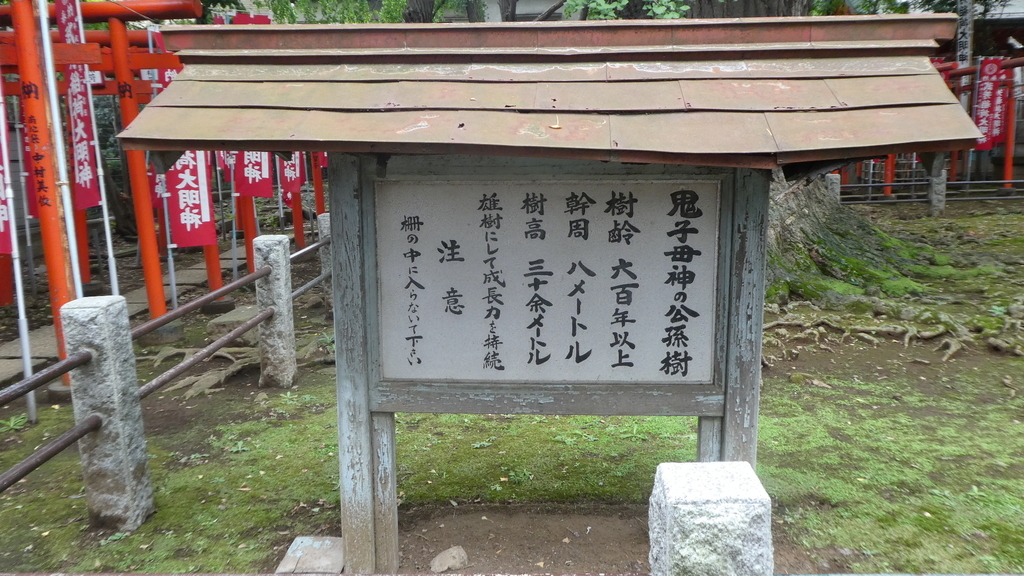 鬼子母神の公孫樹
樹齢 六百年以上
幹周 八メートル
樹高 三十余メートル
雄樹にして成長力を持続
注意
柵の中に入らないで下さい
稲荷大明神
大明神
中村美枚
納